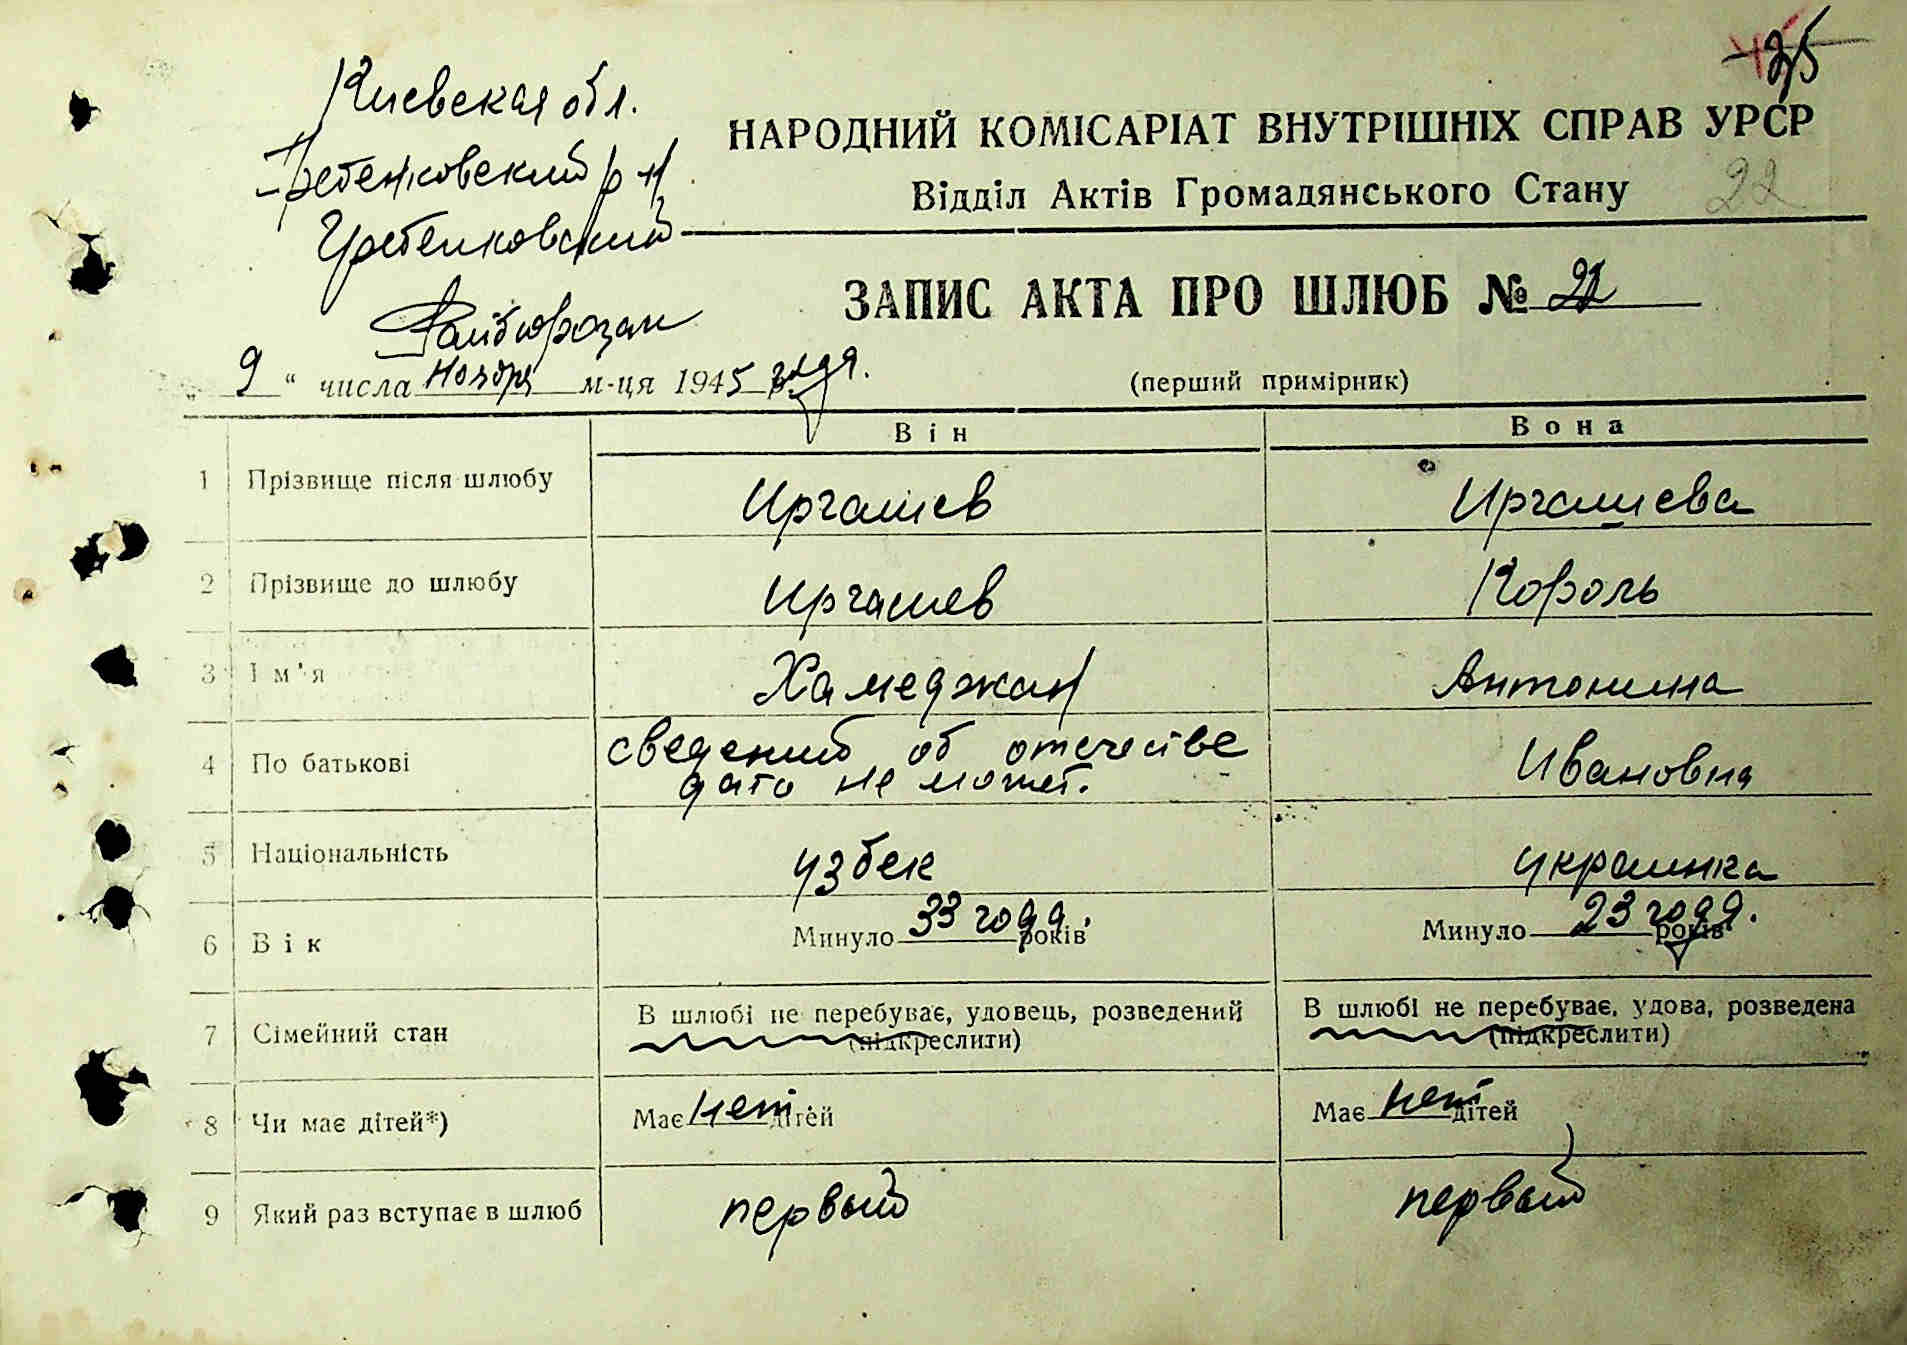 25
Киевская обл.
НАРОДНИЙ КОМІСАРІАТ ВНУТРІШНІХ СПРАВ УРСР
Гребенковский р-н,
Відділ Актів Громадянського Стану 22
Гребенковский
ЗАПИС АКТА ПРО ШЛЮБ № 22
Райбюрозагс
„ 9 “ числа ноября м-ця 1945 года.
(перший примірник)
Він Вона
1 Прізвище після шлюбу Иргашев Иргашева
2 Прізвище до шлюбу Иргашев Король
3 Ім'я Хамеджан Антонина
4 По батькові сведений об отечестве Ивановна
дать не может.
5 Національність узбек украинка
6 Вік Минуло 33 года. років Минуло 23 года. років
7 Сімейний стан В шлюбі не перебуває, удовець, розведений В шлюбі не перебуває, удова, розведена
(підкреслити) (підкреслити)
8 Чи має дітей*) Має нет дітей Має нет дітей
9 Який раз вступає в шлюб первый первый